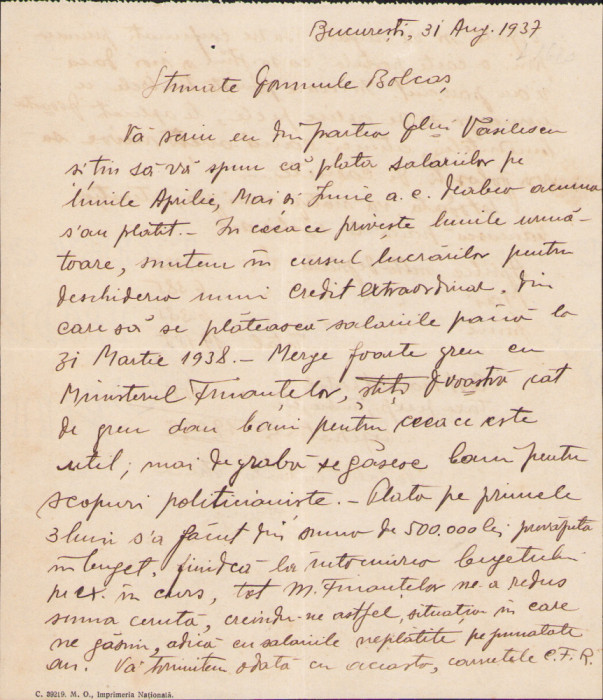 București, 31 Aug. 1937
Stimate Domnule Bolcaș
Vă scriu eu din partea Dlui Vasilescu
și țin să vă spun că plata salariilor pe
lunile Aprilie, Mai și Iunie a.c. deabea acuma
s'au plătit.- In ceeace privește lunile urmă-
toare, suntem în cursul lucrărilor pentru
deschiderea unui credit extraordinar, din
care să se plătească salariile până la
31 Martie 1938.- Merge foarte greu cu
Ministerul Finanțelor, știți Dvoastră cât
de greu dau bani pentru ceeace este
util; mai degrabă se găsesc bani pentru
scopuri politicianiste.- Plata pe primele
3 luni s'a făcut din suma de 500.000 lei prevăzută
în buget, fiindcă la întocmirea bugetului
pe ex. în curs, tot M. Finanțelor ne-a redus
suma cerută, creindu-ne astfel, situația în care
ne găsim, adică cu salariile neplătite pe jumătate
an. Vă trimitem odată cu aceasta, carnetele C.F.R.
C. 39219. M. O., Imprimeria Națională.